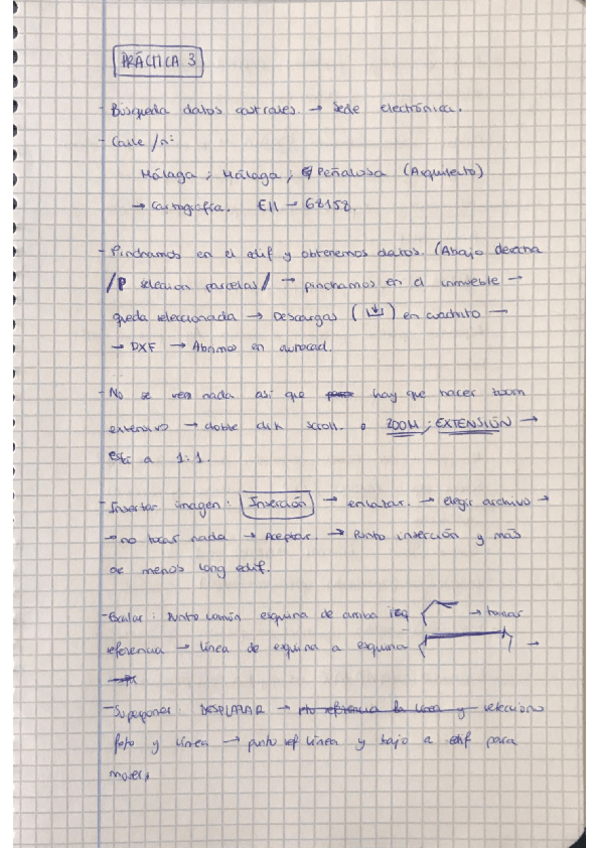 PRÁCTICA 3
- Búsqueda datos castrales. → Sede electrónica.
- Calle / nº:
Málaga ; Málaga ; Peñalosa (Arquitecto)
→ Cartografía. E11 → 68158.
- Pinchamos en el edif y obtenemos datos. (Abajo derecha
/P selección parcelas/ → pinchamos en el inmueble →
queda seleccionada → Descargas ( ) en cuadrito →
→ DXF → Abrimos en autocad.
- No se vea nada así que hay que hacer zoom
extensivo → doble click scroll. o ZOOM ; EXTENSIÓN →
está a 1:1.
- Insertar imagen: Inserción → enlazar. → elegir archivo →
→ no tocar nada → Aceptar. → Punto inserción y más
o menos long edif.
- Escalar : Punto común esquina de arriba izq → hacer
referencia → línea de esquina a esquina →
- Superponer: DESPLAZAR → pto referencia la línea y selecciono
foto y línea → punto ref línea y bajo a edif para
mover,